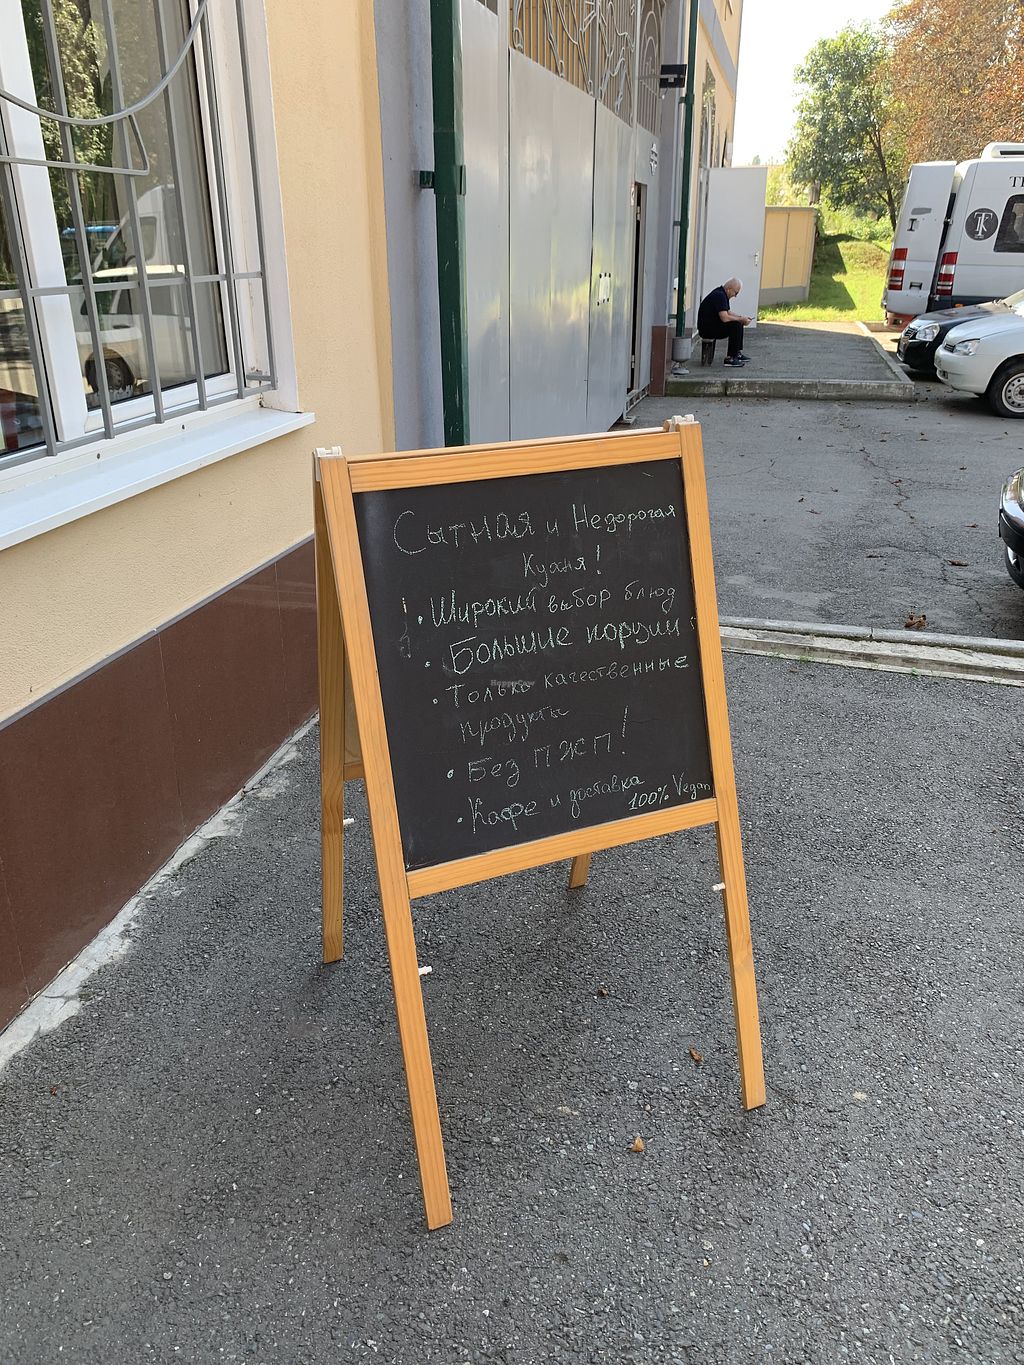 Сытная и Недорогая
Кухня!
• Широкий выбор блюд
• Большие порции
• Только качественные
продукты
• Без ПЖП!
• Кафе и доставка
100% Vegan
HappyCow
TK